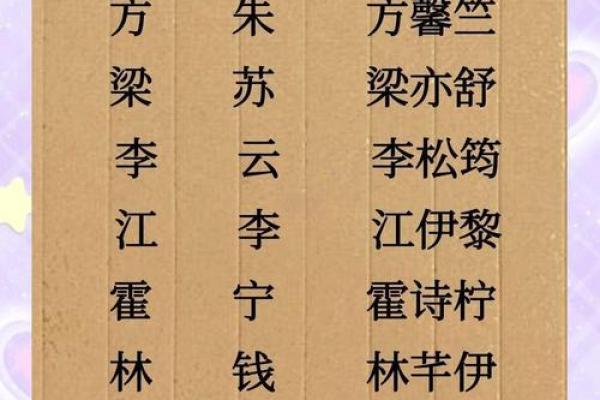 方 朱 方馨竺
梁 苏 梁亦舒
李 云 李松筠
江 李 江伊黎
霍 宁 霍诗柠
林 钱 林芊伊